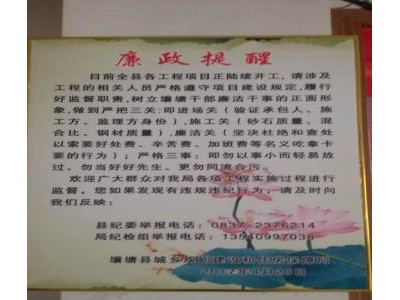 廉政提醒
目前全县各工程项目正陆续开工，请涉及
工程的相关人员严格遵守项目建设规定，履行
好监督职责，树立壤塘干部廉洁干事的正面形
象，做到严把三关：即进场关（验证承包人、施
工方、监理方身份），施工关（砂石质量、混
合比、钢材质量），廉洁关（坚决杜绝和查处
以索要好处费、辛苦费、加班费等名义吃拿卡
要的行为）；严格三事：即勿以事小而轻易放
过、勿当好好先生、更勿同流合污。
欢迎广大群众对我局各项工程实施过程进行
监督，您如果发现有违规违纪行为，请及时向
我们反映：
县纪委举报电话：0837 2376214
局纪检组举报电话：13540997035
壤塘县城乡规划建设和住房保障局
2017年4月26日